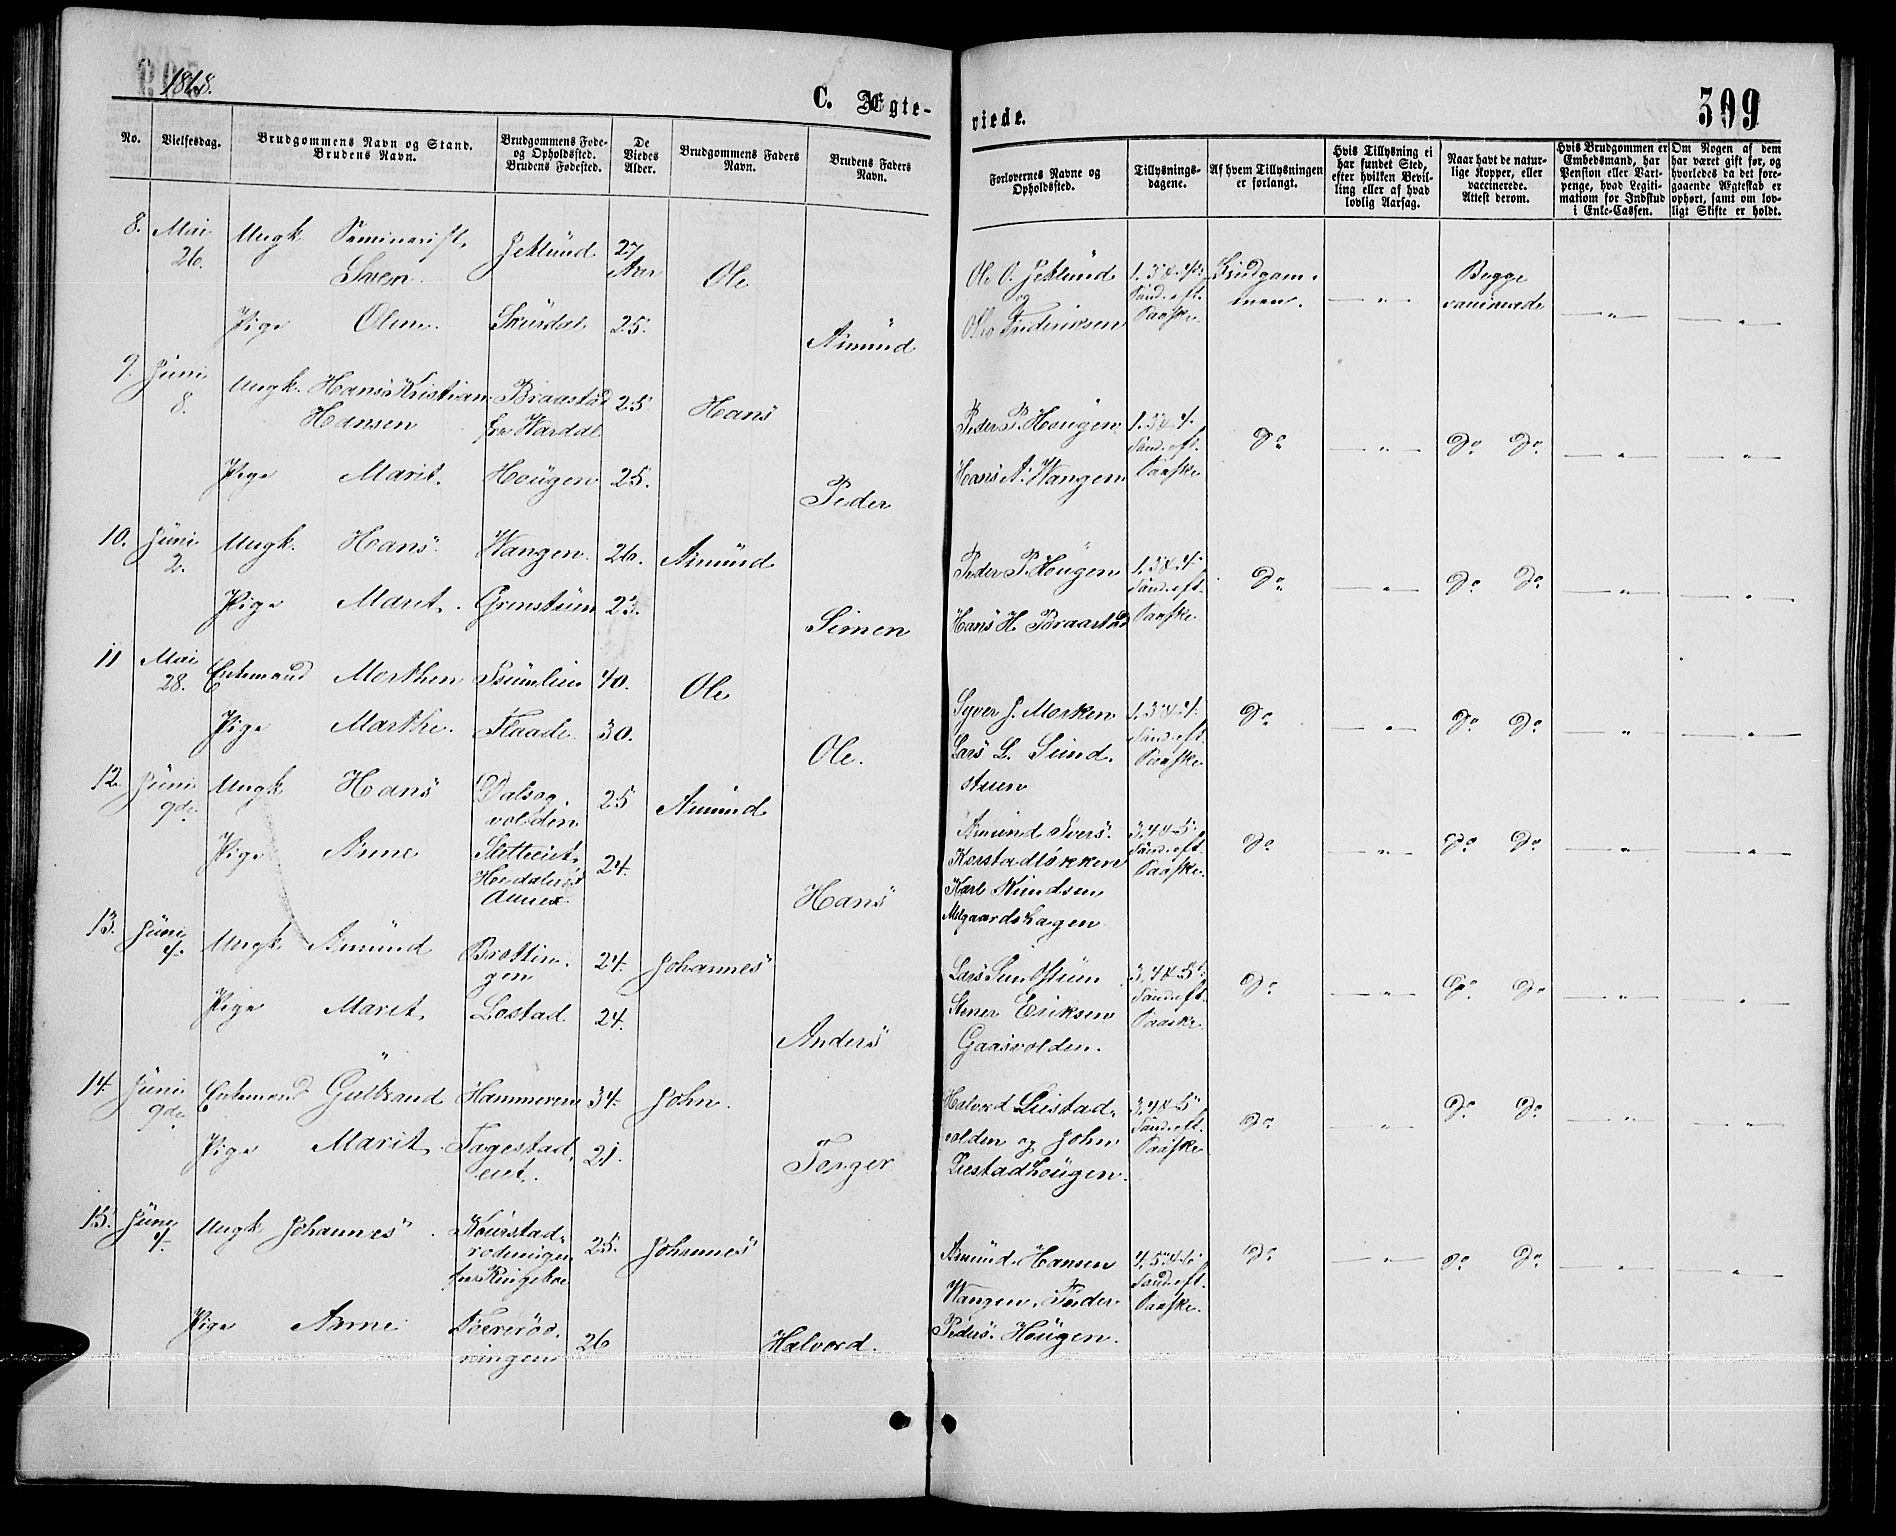 1868.
C. Ægte-
viede.
309
No.
Vielsesdag.
Brudgommens Navn og Stand.
Brudens Navn.
Brudgommens Føde-
og Opholdssted.
Brudens Fødested.
De
Viedes
Alder.
Brudgommens Faders
Navn.
Brudens Faders
Navn.
Forlovernes Navne og
Opholdssted.
Tillysnings-
dagene.
Af hvem Tillysningen
er forlangt.
Hvis Tillysning ei
har fundet Sted,
efter hvilken Bevil-
ling eller af hvad
lovlig Aarsag.
Naar havt de natur-
lige Kopper, eller
vaccinerede.
Attest derom.
Hvis Brudgommen er
Embedsmand, har
Pension eller Vart-
penge, hvad Legiti-
mation for Indskud
i Enke-Cassen.
Om Nogen af dem
har været gift før, og
hvorledes da det fore-
gaaende Ægteskab er
ophørt, samt om lov-
ligt Skifte er holdt.
8. Mai 26. Ungk. Seminarist Sven Jeklund 27 Aar Ole
Pige Oline Skurdal 25. Amund
Ole O. Jeklund og Frederiksen
1. 3 & 4. Sönd. eft. Paaske
Brudgommen.
Begge vaccinerede
9. Juni 8. Ungk. Hans Kristian Hansen Braastad fra Wardal 25. Hans
Pige Marit. Hougen 25. Peder
Peder P. Hougen
Hans A. Wangen
1. 3 & 4. Sönd. eft. Paaske
Do Do Do
10. Juni 2. Ungk. Hans Wangen 26. Amund
Pige Marit. Grenstuen 23. Simen
Peder P. Hougen
Hans H. Braastad
1. 3 & 4. Sönd. eft. Paaske
Do Do Do
11 Mai 28. Enkemand Morthen 40. Ole
Pige Marthe. Flaade. 30. Ole.
Syver J. Morken
Lars L. Sundstuen
1. 3 & 4. Sönd. eft. Paaske
Do Do Do
12. Juni 9de Ungk Hans Dalsegvolden 25 Amund
Pige Anne Sletteeiet, Hedalens Annex. 24. Hans
Amund Ivers. Korstadløkken
Karl Knudsen Melgaardshagen
3. 4 & 5. Sönd. eft. Paaske
Do Do Do
13. Juni 4. Ungk Amund Brettingen 24. Johannes
Pige Marit. Lostad. 24. Anders
Lars Sundstuen
Stener Eriksen
Gaasvolden.
3. 4 & 5. Sönd. eft. Paaske
Do Do Do
14. Juni 9de Enkemand Gulbrand Hammeren 34. John.
Pige Marit Fagestadeiet. 21. Torger
Halvord Liestadvolden og John
Liestadhougen.
3. 4 & 5 Sönd. eft. Paaske
Do Do Do
15. Juni 4. Ungk Johannes fra Ringeboe 25. Johannes
Pige Anne 26 Halvord.
Amund Hansen
Wangen. Peder
Peders. Hougen.
Sönd. eft. Paaske
Do Do Do